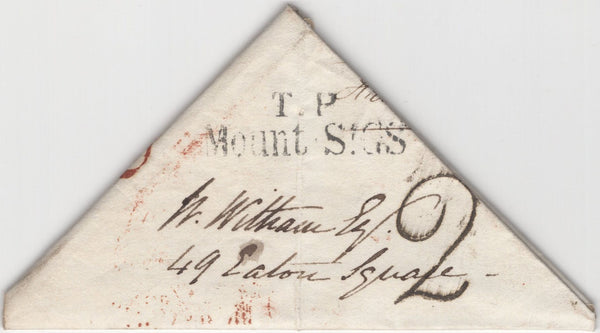 T. P
Mount St GS
W. Witham Esq.
49 Eaton Square
2